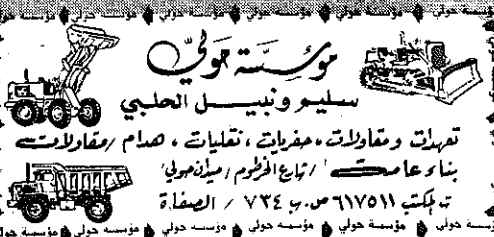 مؤسسة حولي مؤسسة حولي مؤسسة حولي مؤسسة حولي مؤسسة حولي
مؤسسة حولي
سليم ونبيل الحلبي
تعهدات ومقاولات ، حفريات ، نقليات ، هدام / مقاولات
بناء عامة / شارع الخرطوم / ميدان حولي
ت المكتب ٦١٧٥١١ ص.ب ٧٣٤ / الصفاة
مؤسسة حولي مؤسسة حولي مؤسسة حولي مؤسسة حولي مؤسسة حولي